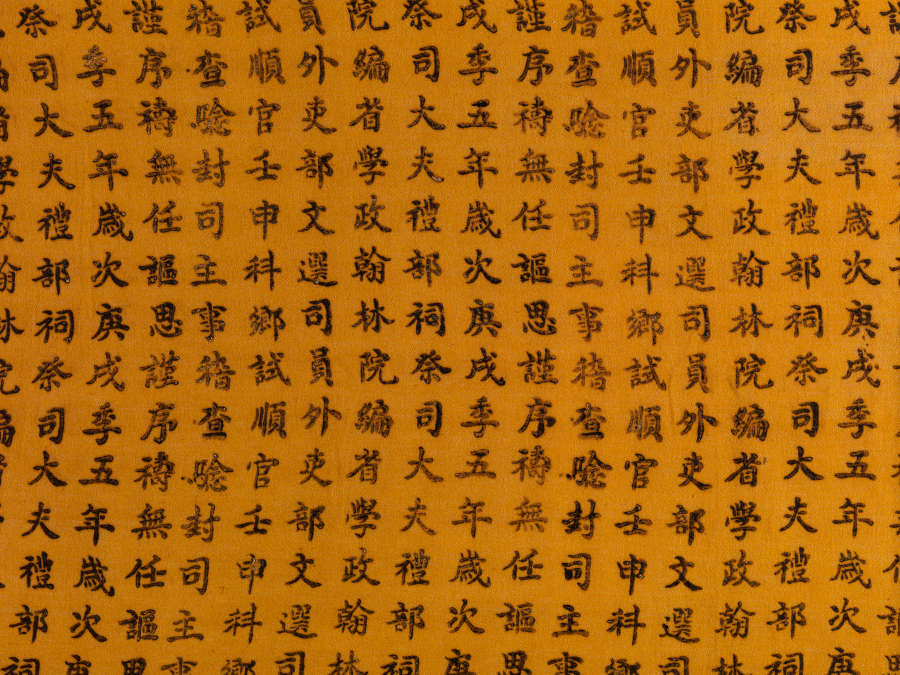 戌季五年歲次庚戌季五年歲次庚
祭司大夫禮部祠祭司大夫禮部祠
院編省學政翰林院編省學政翰林
員外吏部文選司員外吏部文選司
試順官壬申科鄉試順官壬申科鄉
稽查騐封司主事稽查騐封司主事
謹序禱無任謳思謹序禱無任謳思
戌季五年歲次庚戌季五年歲次庚
祭司大夫禮部祠祭司大夫禮部祠
院編省學政翰林院編省學政翰林
員外吏部文選司員外吏部文選司
試順官壬申科鄉試順官壬申科鄉
稽查騐封司主事稽查騐封司主事
謹序禱無任謳思謹序禱無任謳思
戌季五年歲次庚戌季五年歲次庚
祭司大夫禮部祠祭司大夫禮部祠